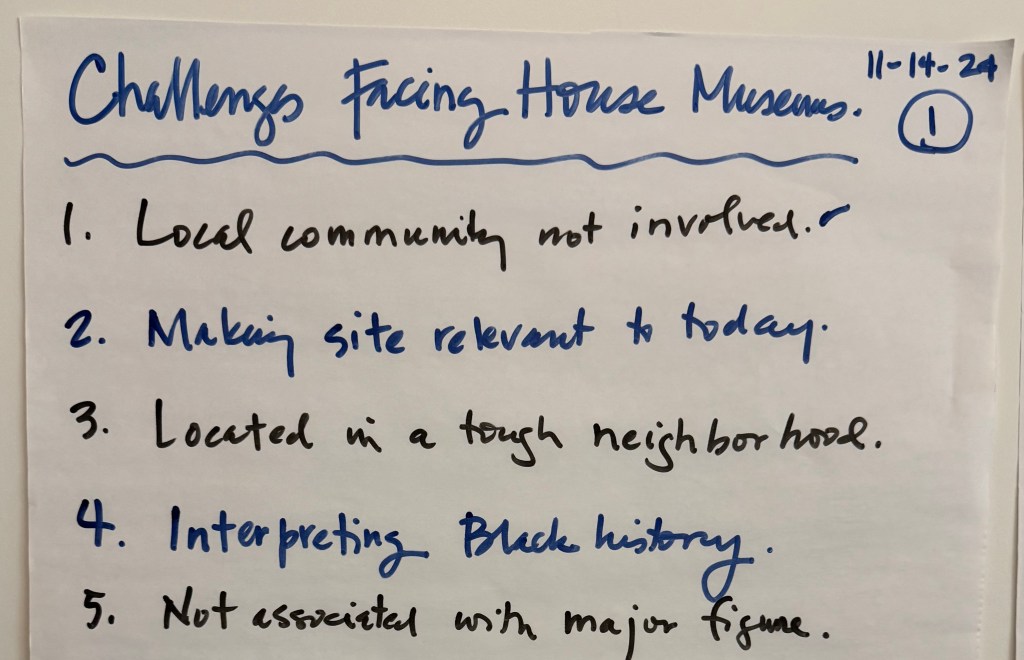 Challenges Facing House Museums.
11-14-24
1
1. Local community not involved.
2. Making site relevant to today.
3. Located in a tough neighborhood.
4. Interpreting Black history.
5. Not associated with major figure.